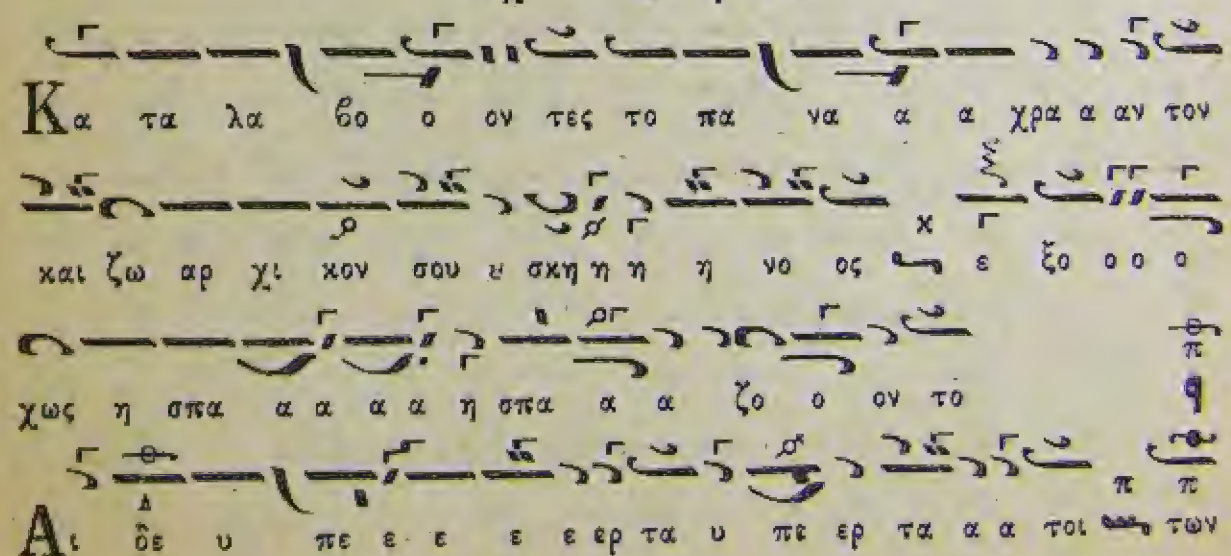 Κα τα λα βο ο ον τες το πα να α α χρα α αν τον
και ζω αρ χι κον σου ȣ σκη η η η νο ος κ ε ξο ο ο ο
χως η σπα α α α α η σπα α α ζο ο ον το π
Αι δε υ πε ε ε ε ε ερ τα υ πε ερ τα α α τοι π π των